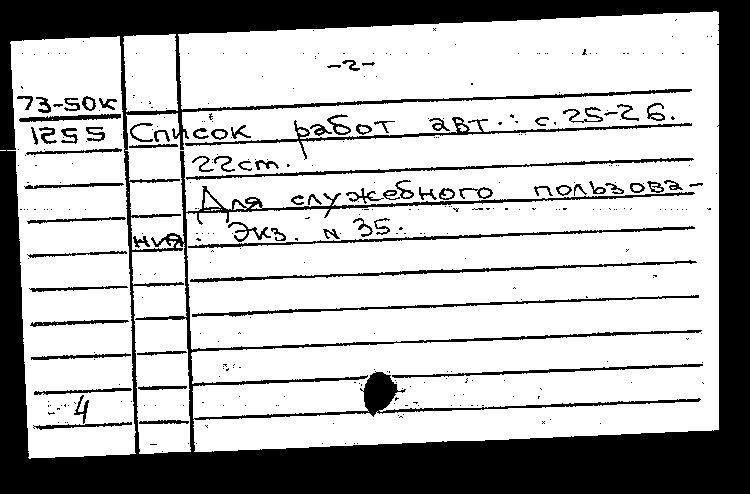 -2-
73-50к
1255 Список работ авт.: с.25-26.
22ст.
Для служебного пользова-
ния. Экз. N 35.
4